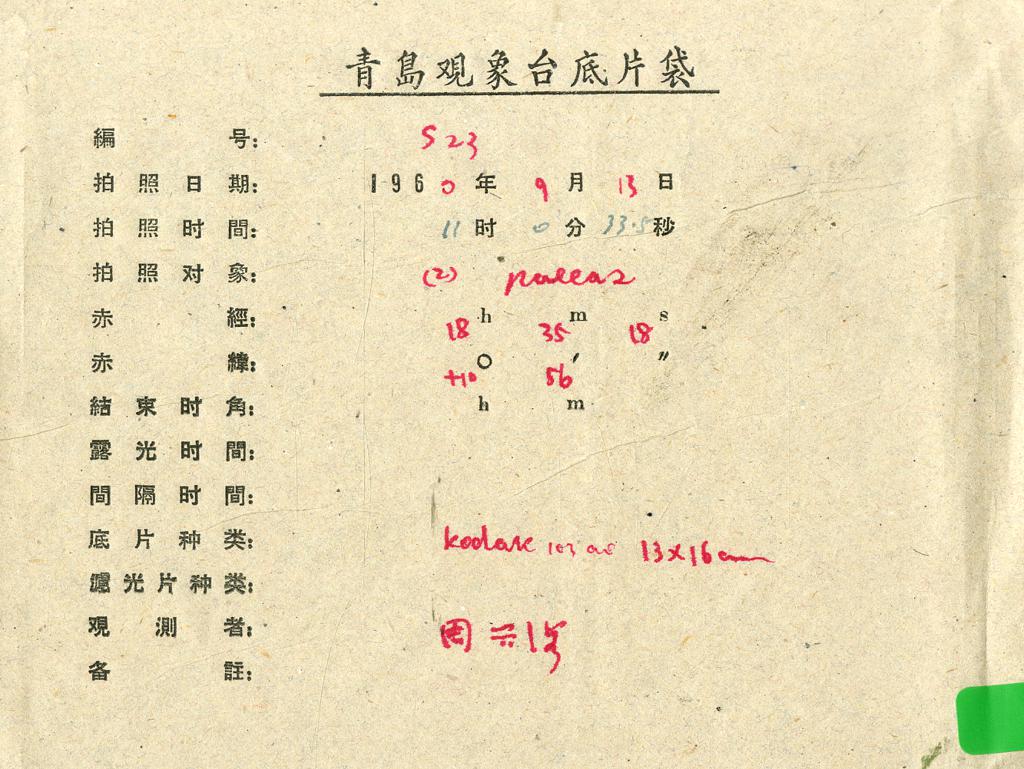 青島观象台底片袋
編号: S23
拍照日期: 1960年9月13日
拍照时間: 11时0分33.5秒
拍照对象: (2) pallas
赤經: 18h 35m 18s
赤緯: +10° 56′ ″
結束时角: h m
露光时間:
間隔时間:
底片种类: kodak 103 a0 13×16cm
濾光片种类:
观測者: 周
备註: